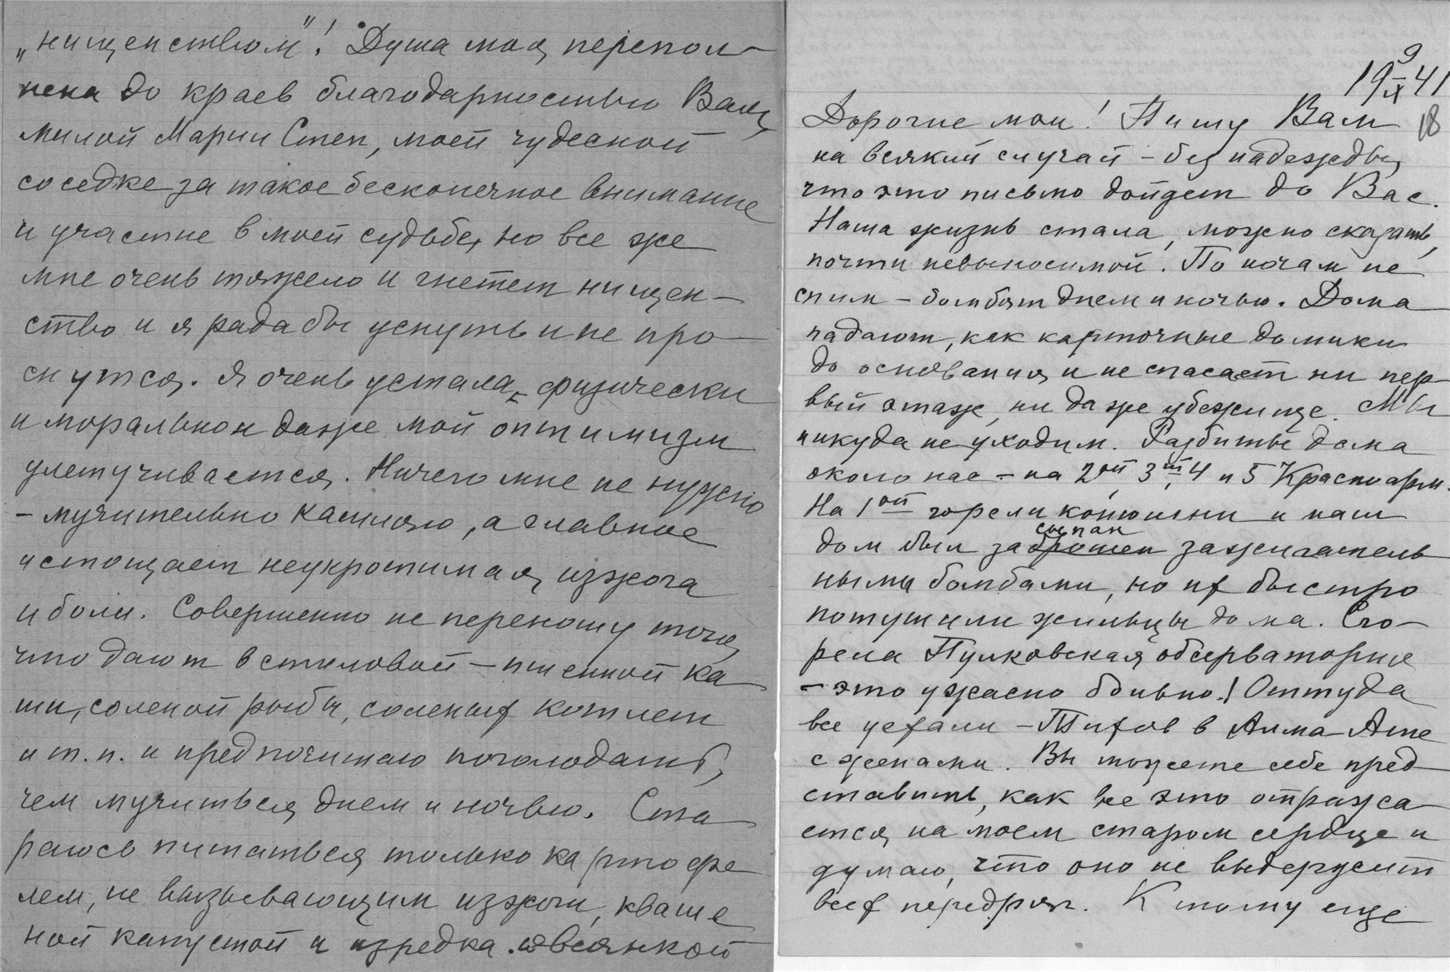 „нищенством"! Душа моя перепол-
нена до краев благодарностью Вам,
милой Марии Степ, моей чудесной
соседке за такое бесконечное внимание
и участие в моей судьбе, но все же
мне очень тяжело и гнетет нищен-
ство и я рада бы уснуть и не про-
снутся. Я очень устала физически
и морально и даже мой оптимизм
улетучивается. Ничего мне не нужно
- мучительно кашляю, а главное
истощает неукротимая изжога
и боли. Совершенно не переношу того,
что дают в столовой - пшенной ка
ши, соленой рыбы, соленых котлет
и т.п. и предпочитаю поголодать,
чем мучиться днем и ночью. Ста
раюсь питаться только картофе
лем, не вызывающим изжоги, кваше
ной капустой и изредка овсянкой
9
19 IX 41
18
Дорогие мои! Пишу Вам
на всякий случай - без надежды,
что это письмо дойдет до Вас.
Наша жизнь стала, можно сказать,
почти невыносимой. По ночам не
спим - бомбят днем и ночью. Дома
падают, как карточные домики
до основания и не спасает ни пер-
вый этаж, ни даже убежище. Мы
никуда не уходим. Разбиты дома
около нас - на 2ой 3ей, 4 и 5 Красноарм.
На 1ой горели конюшни и наш
сыпан
дом был заброшен зажигатель
ными бомбами, но их быстро
потушили жильцы дома. Сго-
рела Пулковская обсерватория
- это ужасно обидно! Оттуда
все уехали - Тихов в Алма-Ате
с женами. Вы можете себе пред
ставить, как все это отража
ется на моем старом сердце и
думаю, что оно не выдержит
всех передряг. К тому еще